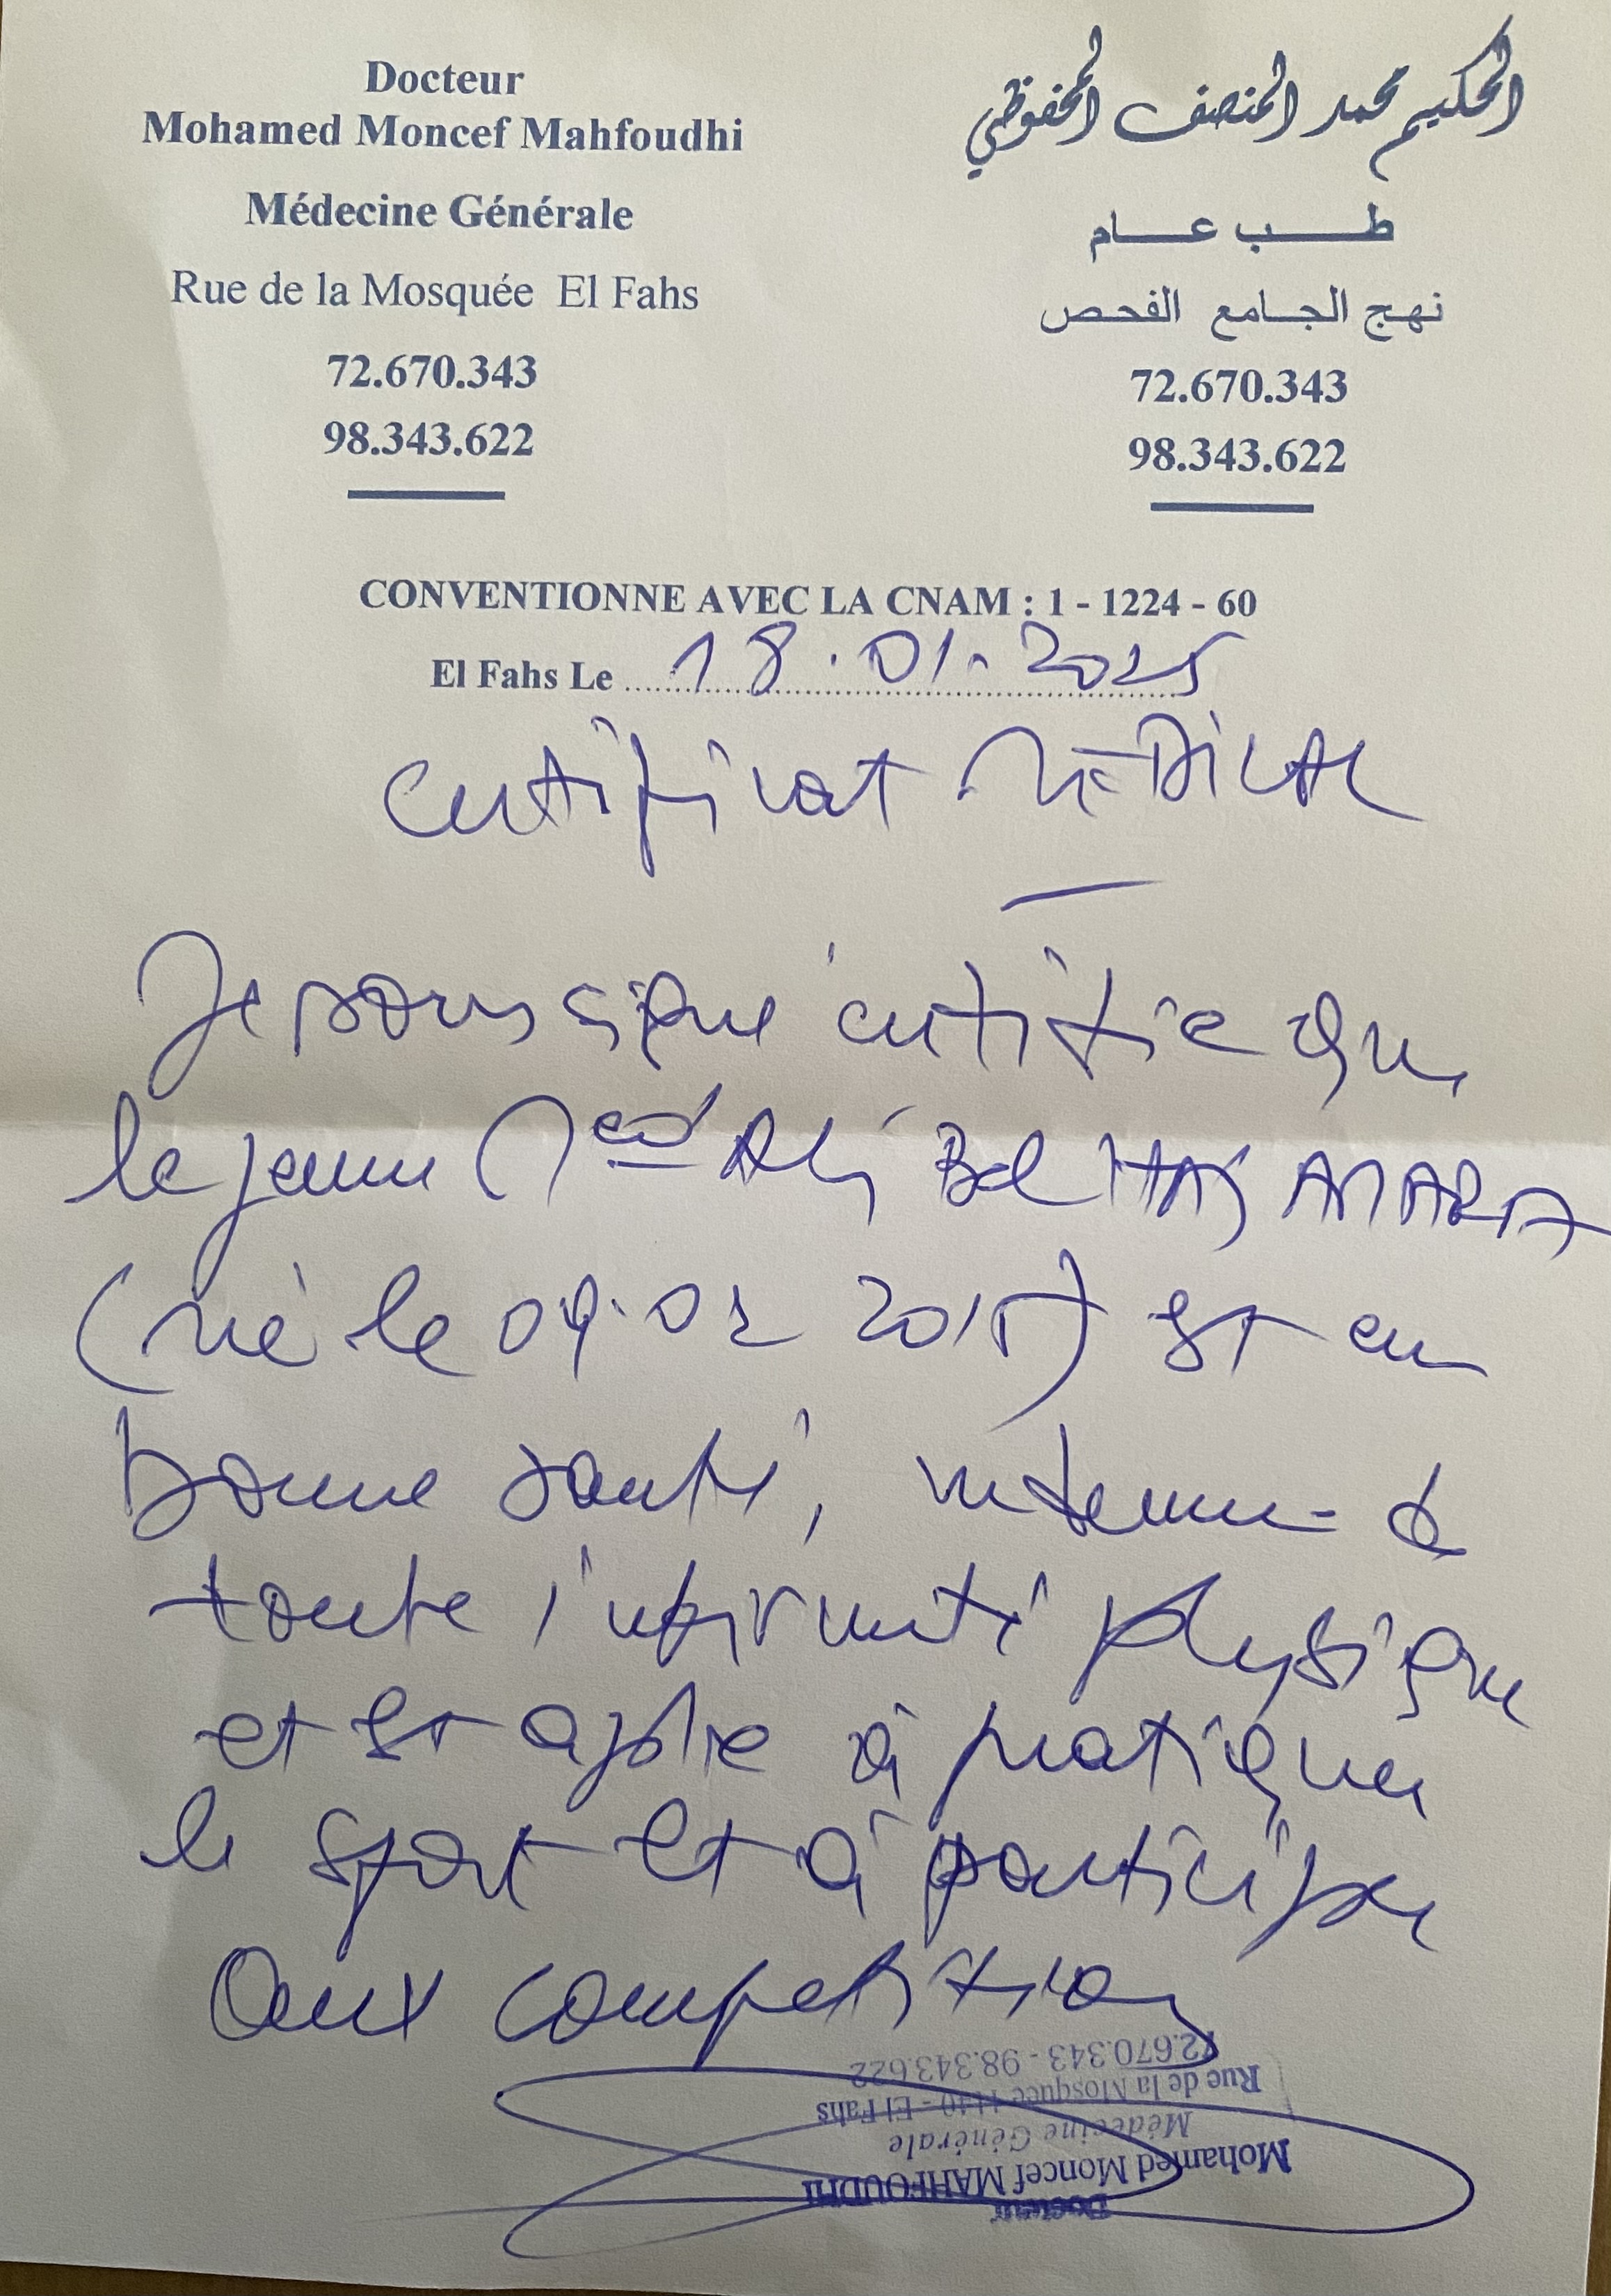 Docteur
Mohamed Moncef Mahfoudhi
Médecine Générale
Rue de la Mosquée El Fahs
72.670.343
98.343.622
الحكيم محمد المنصف المحفوظي
طب عام
نهج الجامع الفحص
72.670.343
98.343.622
CONVENTIONNE AVEC LA CNAM : 1 - 1224 - 60
El Fahs Le 18.01.2025
Certificat MéDICAL
Je soussigné certifie que
le jeune Med ALi Bel HAJ AMARA
(né le 09.02 2015) est en
bonne santé, indemne de
toute infirmité physique
et est apte à pratiquer
le sport et à participer
aux competition
Docteur
Mohamed Moncef MAHFOUDHI
Médecine Générale
Rue de la Mosquée 1140 - El Fahs
72.670.343 - 98.343.622